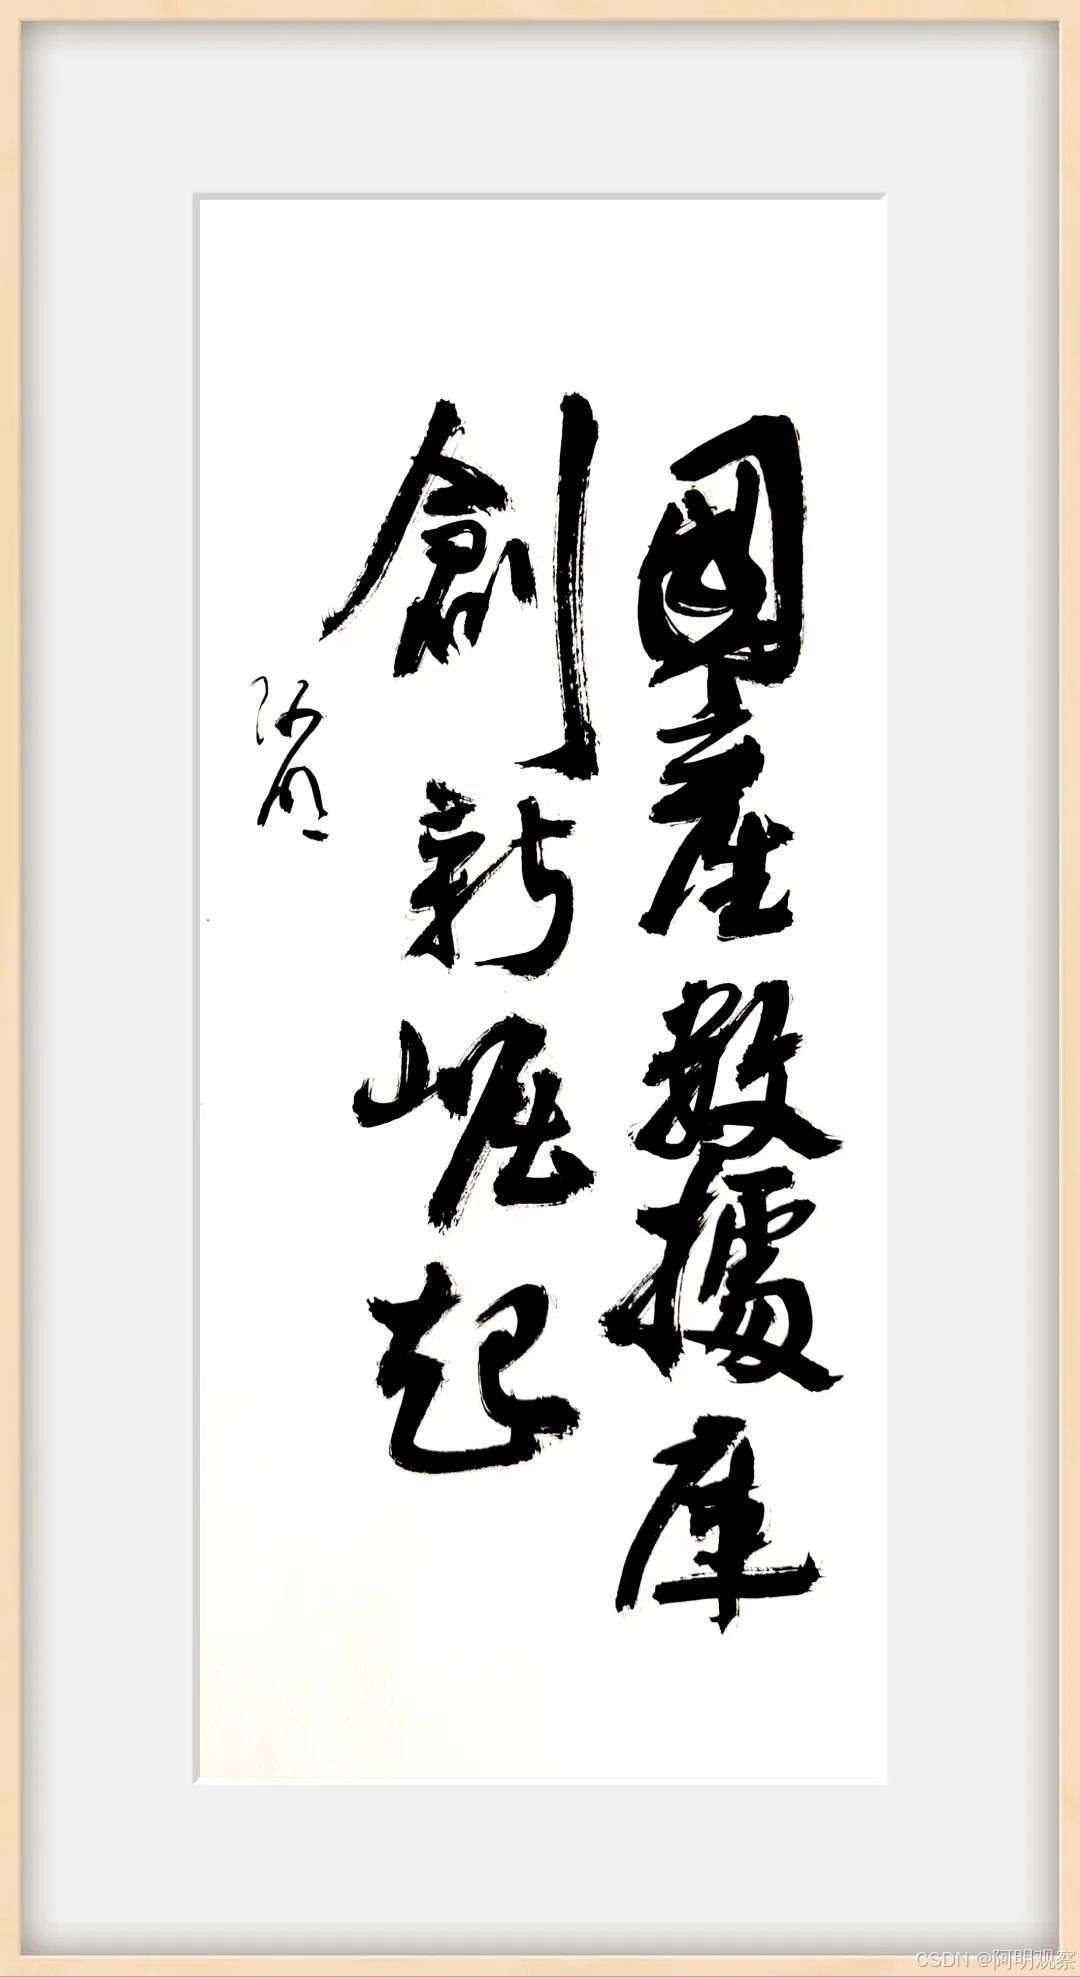 國產數據库
創新崛起
阿明
CSDN @阿明观察